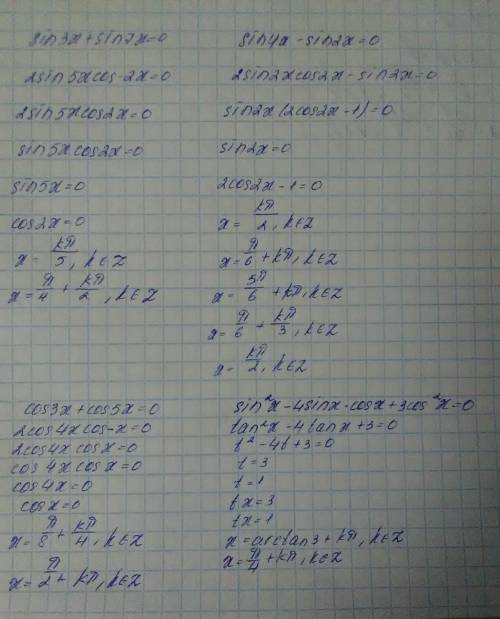 sin3x+sin7x=0
2sin5xcos-2x=0
2sin5xcos2x=0
sin5xcos2x=0
sin5x=0
cos2x=0
x=kπ/5, k∈Z
x=π/4+kπ/2, k∈Z
sin4x-sin2x=0
2sin2xcos2x-sin2x=0
sin2x(2cos2x-1)=0
sin2x=0
2cos2x-1=0
x=kπ/2, k∈Z
x=π/6+kπ, k∈Z
x=5π/6+kπ, k∈Z
x=π/6+kπ/3, k∈Z
x=kπ/2, k∈Z
cos3x+cos5x=0
2cos4xcos-x=0
2cos4xcosx=0
cos4xcosx=0
cos4x=0
cosx=0
x=π/8+kπ/4, k∈Z
x=π/2+kπ, k∈Z
sin²x-4sinx·cosx+3cos²x=0
tan²x-4tanx+3=0
t²-4t+3=0
t=3
t=1
tx=3
tx=1
x=arctan3+kπ, k∈Z
x=π/4+kπ, k∈Z